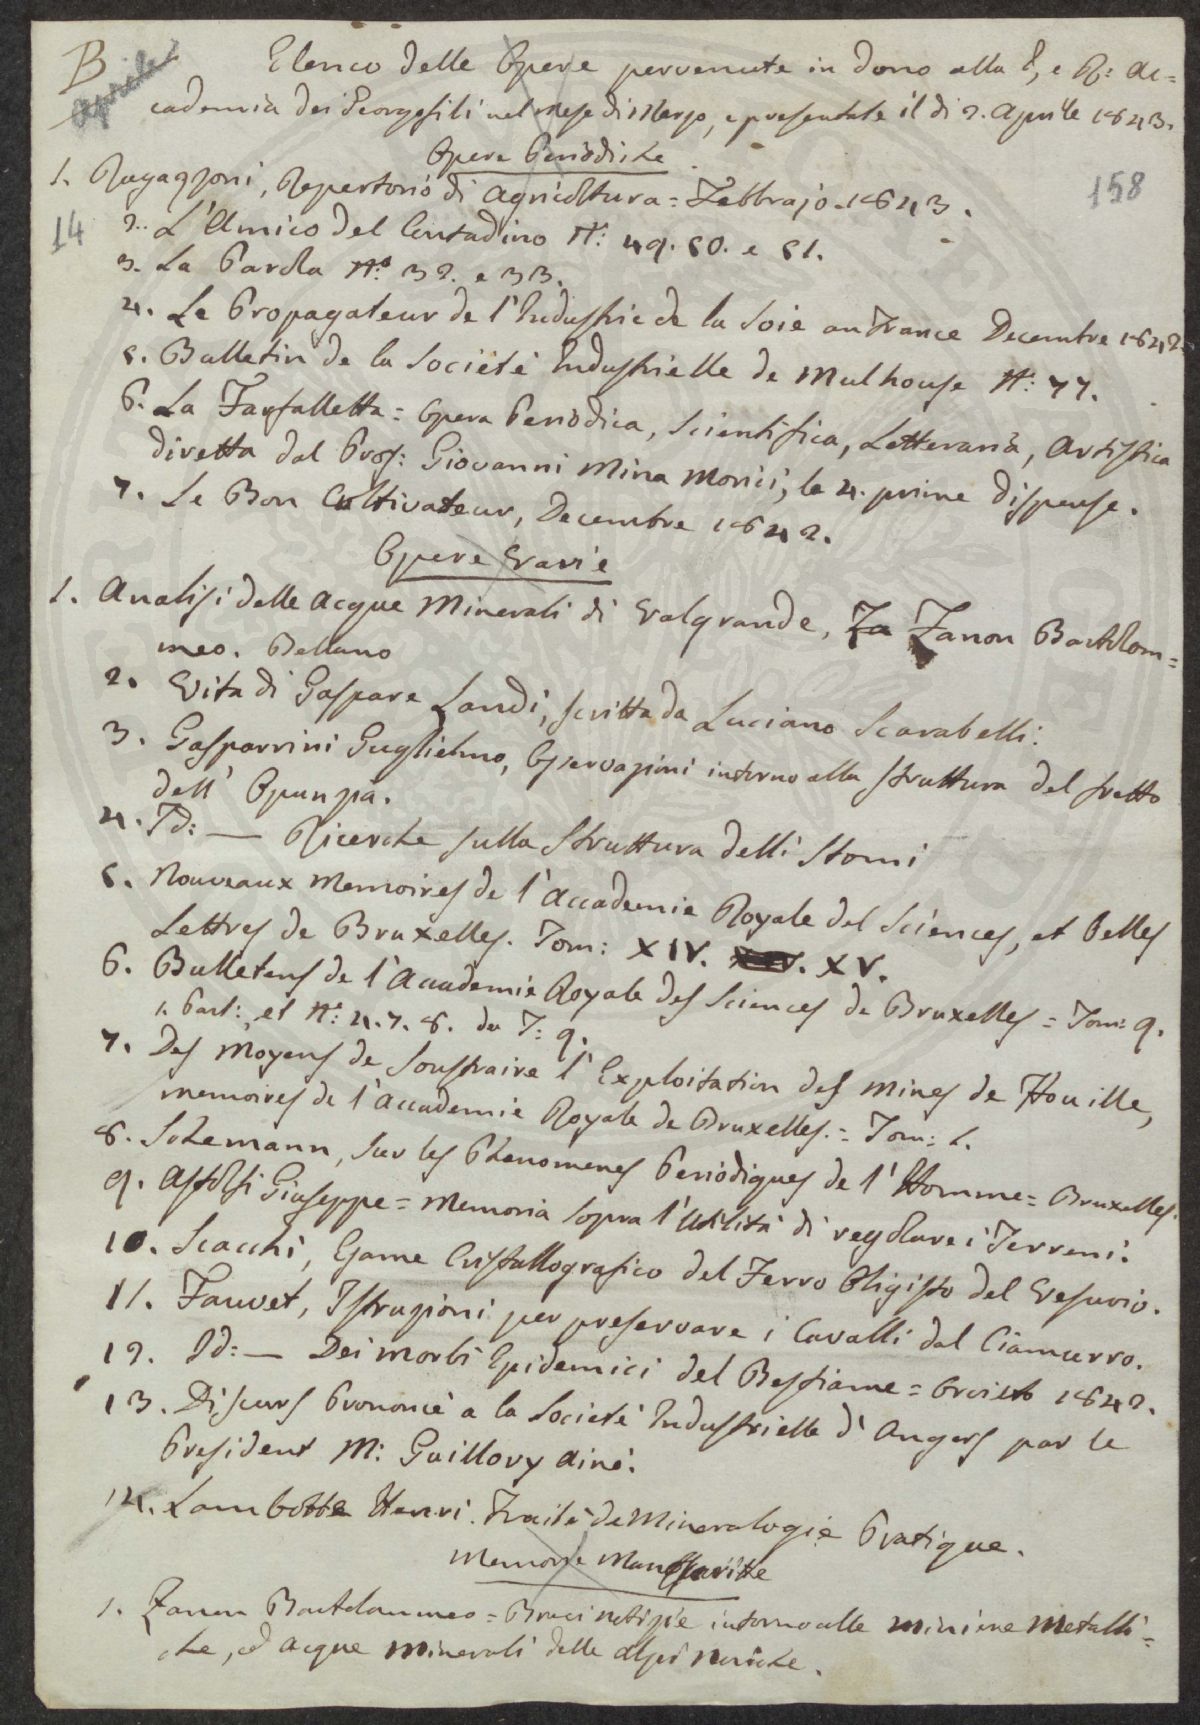 B
Aprile
Elenco delle Opere pervenute in dono alla I, e R: Ac=
cademia dei Georgofili nel mese di Marzo, e presentate il dì 2. Aprile 1843.
Opere Periodiche
1. Ragazzoni, Repertorio di Agricoltura = Febbrajo 1843.
158
14
2. L'Amico del Contadino N: 49. 50. e 51.
3. La Parola N.o 32. e 33.
4. Le Propagateur de l'Industrie de la Soie an France Decembre 1842.
5. Bulletin de la Societé Industrielle de Mulhouse N: 77.
6. La Farfalletta = Opera Periodica, Scientifica, Letteraria, Artistica
diretta dal Prof: Giovanni Mina Morici, le 4. prime dispense.
7. Le Bon Cultivateur, Decembre 1842.
Opere Varie
1. Analisi delle Acque Minerali di Valgrande, Za Zanon Bartolom=
meo. Belluno
2. Vita di Gaspare Landi, scritta da Luciano Scarabelli.
3. Gasparrini Guglielmo, Osservazioni intorno alla struttura del frutto
dell' Opunzia.
4. Id: — Ricerche sulla Struttura delli Stomi
5. Nouveaux Memoires de l'Accademie Royale des Sciences, et belles
Lettres de Bruxelles. Tom: XIV. XV.
6. Bulletens de l'Accademie Royale des Sciences de Bruxelles = Tom: 9.
1. Part:, et N: 4. 7. 8. du T: 9.
7. Des Moyens de Soustraire l'Exploitation des mines de Houille,
memoires de l'Accademie Royale de Bruxelles. = Tom: 1.
8. Schemann, Sur les Phenomenes Periodiques de l'Homme = Bruxelles.
9. Astolfi Giuseppe = Memoria sopra l'Utilità di regolare i Terreni.
10. Scacchi, Esame Cristallografico del Ferro Oligisto del Vesuvio.
11. Fauvet, Istruzioni per preservare i Cavalli dal Ciamurro.
12. Id: — Dei morbi Epidemici del Bestiame = 1842.
13. Discurs Prononcé a la Societé Industrielle d'Angers par le
President M: Guillory Ainé.
14. Lambotte Henri. Traité de Mineralogie Pratique.
Memorie Manoscritte
1. Zanon Bartolommeo = Brevi notizie intorno alle miniere Metalli=
che, ed acque minerali delle alpi Noriche.